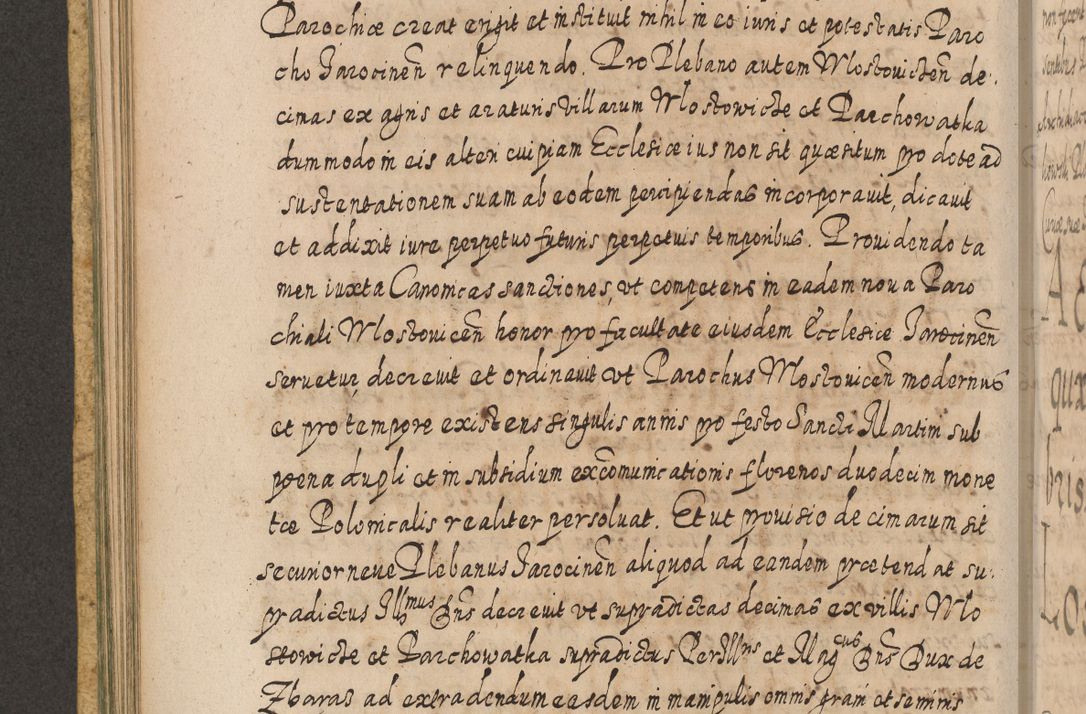 Parochiæ creat erigit et instituit nihil in eo iuris et potestatis Paro
cho Jarocinen̄ relinquendo. Pro Plebano autem Włostouicten̄ de:
cimas ex agris et araturis Villarum Włostowicze et Parchowatka
dummodo in eis alteri cuipiam Ecclesiæ ius non sit quæsitum pro dote ad
sustentationem suam ab eodem percipiendas incorporauit, dicauit
et addixit iure perpetuo futuris perpetuis temporibus. Prouidendo ta
men iuxta Canonicas sanctiones, vt competens in eadem noua Paro
chiali Włostouicen̄ honor pro facultate eiusdem Ecclesiæ Jarocinen̄
seruetur, decreuit et ordinauit vt Parochus Włostouicen̄ modernus
et pro tempore existens singulis annis pro festo Sancti Martini sub
poena dupli et in subsidium excōmunicationis florenos duodecim mone
tæ Polonicalis realiter persoluat. Et ut prouisio decimarum sit
securior neue Plebanus Jarocinen̄ aliquod ad eandem prætendat su:
pradictus Ill̄mus Dn̄s decreuit vt supradictas decimas ex villis Wło
stowicze et Parchowatka supradictus Perill̄ris et Maḡcus Dn̄s Dux de
Zbaraz ad extradendum easdem in manipulis omnis grani et seminis